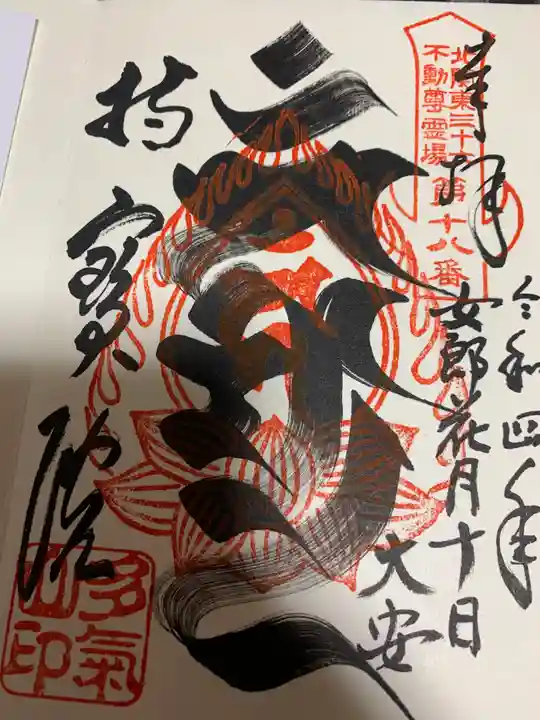 奉拝
北関東三十六
不動尊霊場
第十八番
令和四年
女郎花月十日
大安
持寳院
多氣
山印